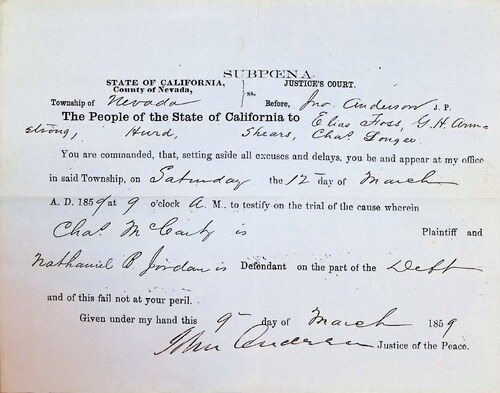 SUBPŒNA.
STATE OF CALIFORNIA, County of Nevada, } ss. JUSTICE'S COURT.
Township of Nevada Before, Jno. Anderson J. P.
The People of the State of California to Elias Hoss, G. H. Arm-
strong, Hurd, Shears, Chas.
You are commanded, that, setting aside all excuses and delays, you be and appear at my office
in said Township, on Saturday the 12 day of March
A. D. 1859 at 9 o'clock A. M., to testify on the trial of the cause wherein
Chas. McCarty is Plaintiff and
Nathaniel P. Jordan is Defendant on the part of the Deft
and of this fail not at your peril.
Given under my hand this 9 day of March 1859
John Anderson Justice of the Peace.